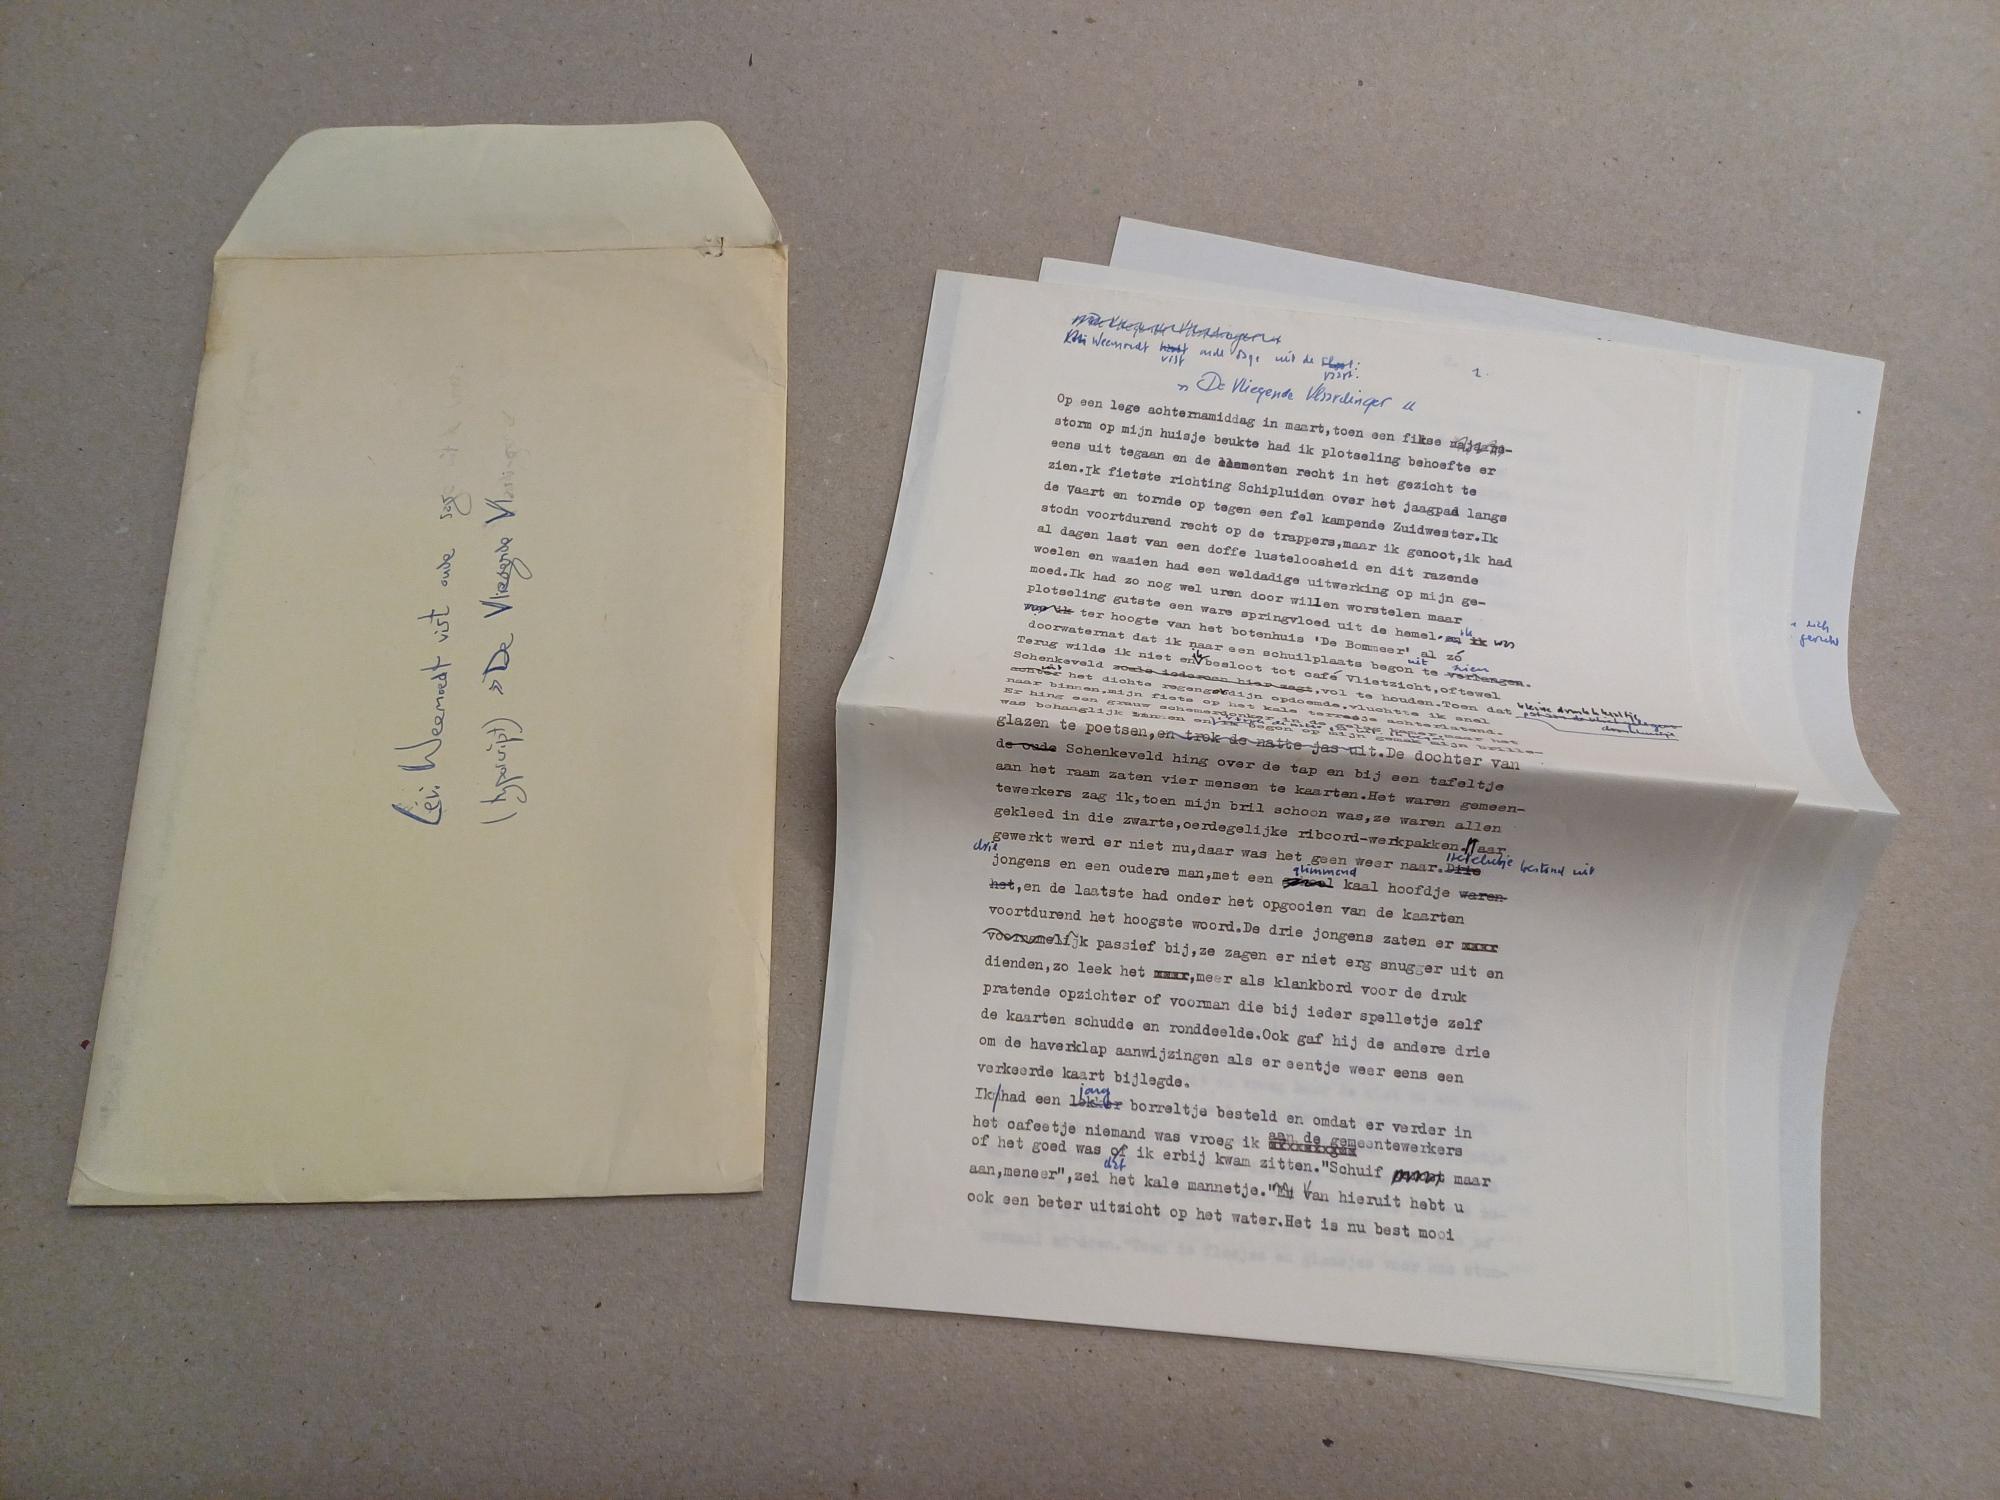 Levi Weemoedt vist oude sage uit
(typoscript) »De Vliegende Vlaardinger«
Levi Weemoedt vist oude sage uit de vaart:
1.
» De Vliegende Vlaardinger «
Op een lege achternamiddag in maart,toen een fikse
storm op mijn huisje beukte had ik plotseling behoefte er
eens uit tegaan en de elementen recht in het gezicht te
zien.Ik fietste richting Schipluiden over het jaagpad langs
de Vaart en tornde op tegen een fel kampende Zuidwester.Ik
stodn voortdurend recht op de trappers,maar ik genoot,ik had
al dagen last van een doffe lusteloosheid en dit razende
woelen en waaien had een weldadige uitwerking op mijn ge-
moed.Ik had zo nog wel uren door willen worstelen maar
plotseling gutste een ware springvloed uit de hemel. en ik
was ik ter hoogte van het botenhuis 'De Bommeer' al zó ik was
doorwaternat dat ik naar een schuilplaats begon te verlangen. uit zien
Terug wilde ik niet en ik besloot tot café Vlietzicht,oftewel
Schenkeveld zoals iedereen hier zegt,vol te houden.Toen dat
achter het dichte regengordijn opdoemde,vluchtte ik snel
naar binnen,mijn fiets op het kale terrasje achterlatend.
Er hing een grauw schemerdonker in de gelagkamer,maar het
was behaaglijk binnen en ik begon op mijn gemak mijn brille-
glazen te poetsen,en trok de natte jas uit.De dochter van
de oude Schenkeveld hing over de tap en bij een tafeltje
aan het raam zaten vier mensen te kaarten.Het waren gemeen-
tewerkers zag ik,toen mijn bril schoon was,ze waren allen
gekleed in die zwarte,oerdegelijke ribcord-werkpakken.Maar
gewerkt werd er niet nu,daar was het geen weer naar.Drie Het clubje bestond uit
drie jongens en een oudere man,met een glimmend kaal hoofdje waren
het,en de laatste had onder het opgooien van de kaarten
voortdurend het hoogste woord.De drie jongens zaten er
voornamelijk passief bij,ze zagen er niet erg snugger uit en
dienden,zo leek het,meer als klankbord voor de druk
pratende opzichter of voorman die bij ieder spelletje zelf
de kaarten schudde en ronddeelde.Ook gaf hij de andere drie
om de haverklap aanwijzingen als er eentje weer eens een
verkeerde kaart bijlegde.
Ik had een lekker jong borreltje besteld en omdat er verder in
het cafeetje niemand was vroeg ik aan de gemeentewerkers
of het goed was of dat ik erbij kwam zitten."Schuif maar
aan,meneer",zei het kale mannetje."Van hieruit hebt u
ook een beter uitzicht op het water.Het is nu best mooi